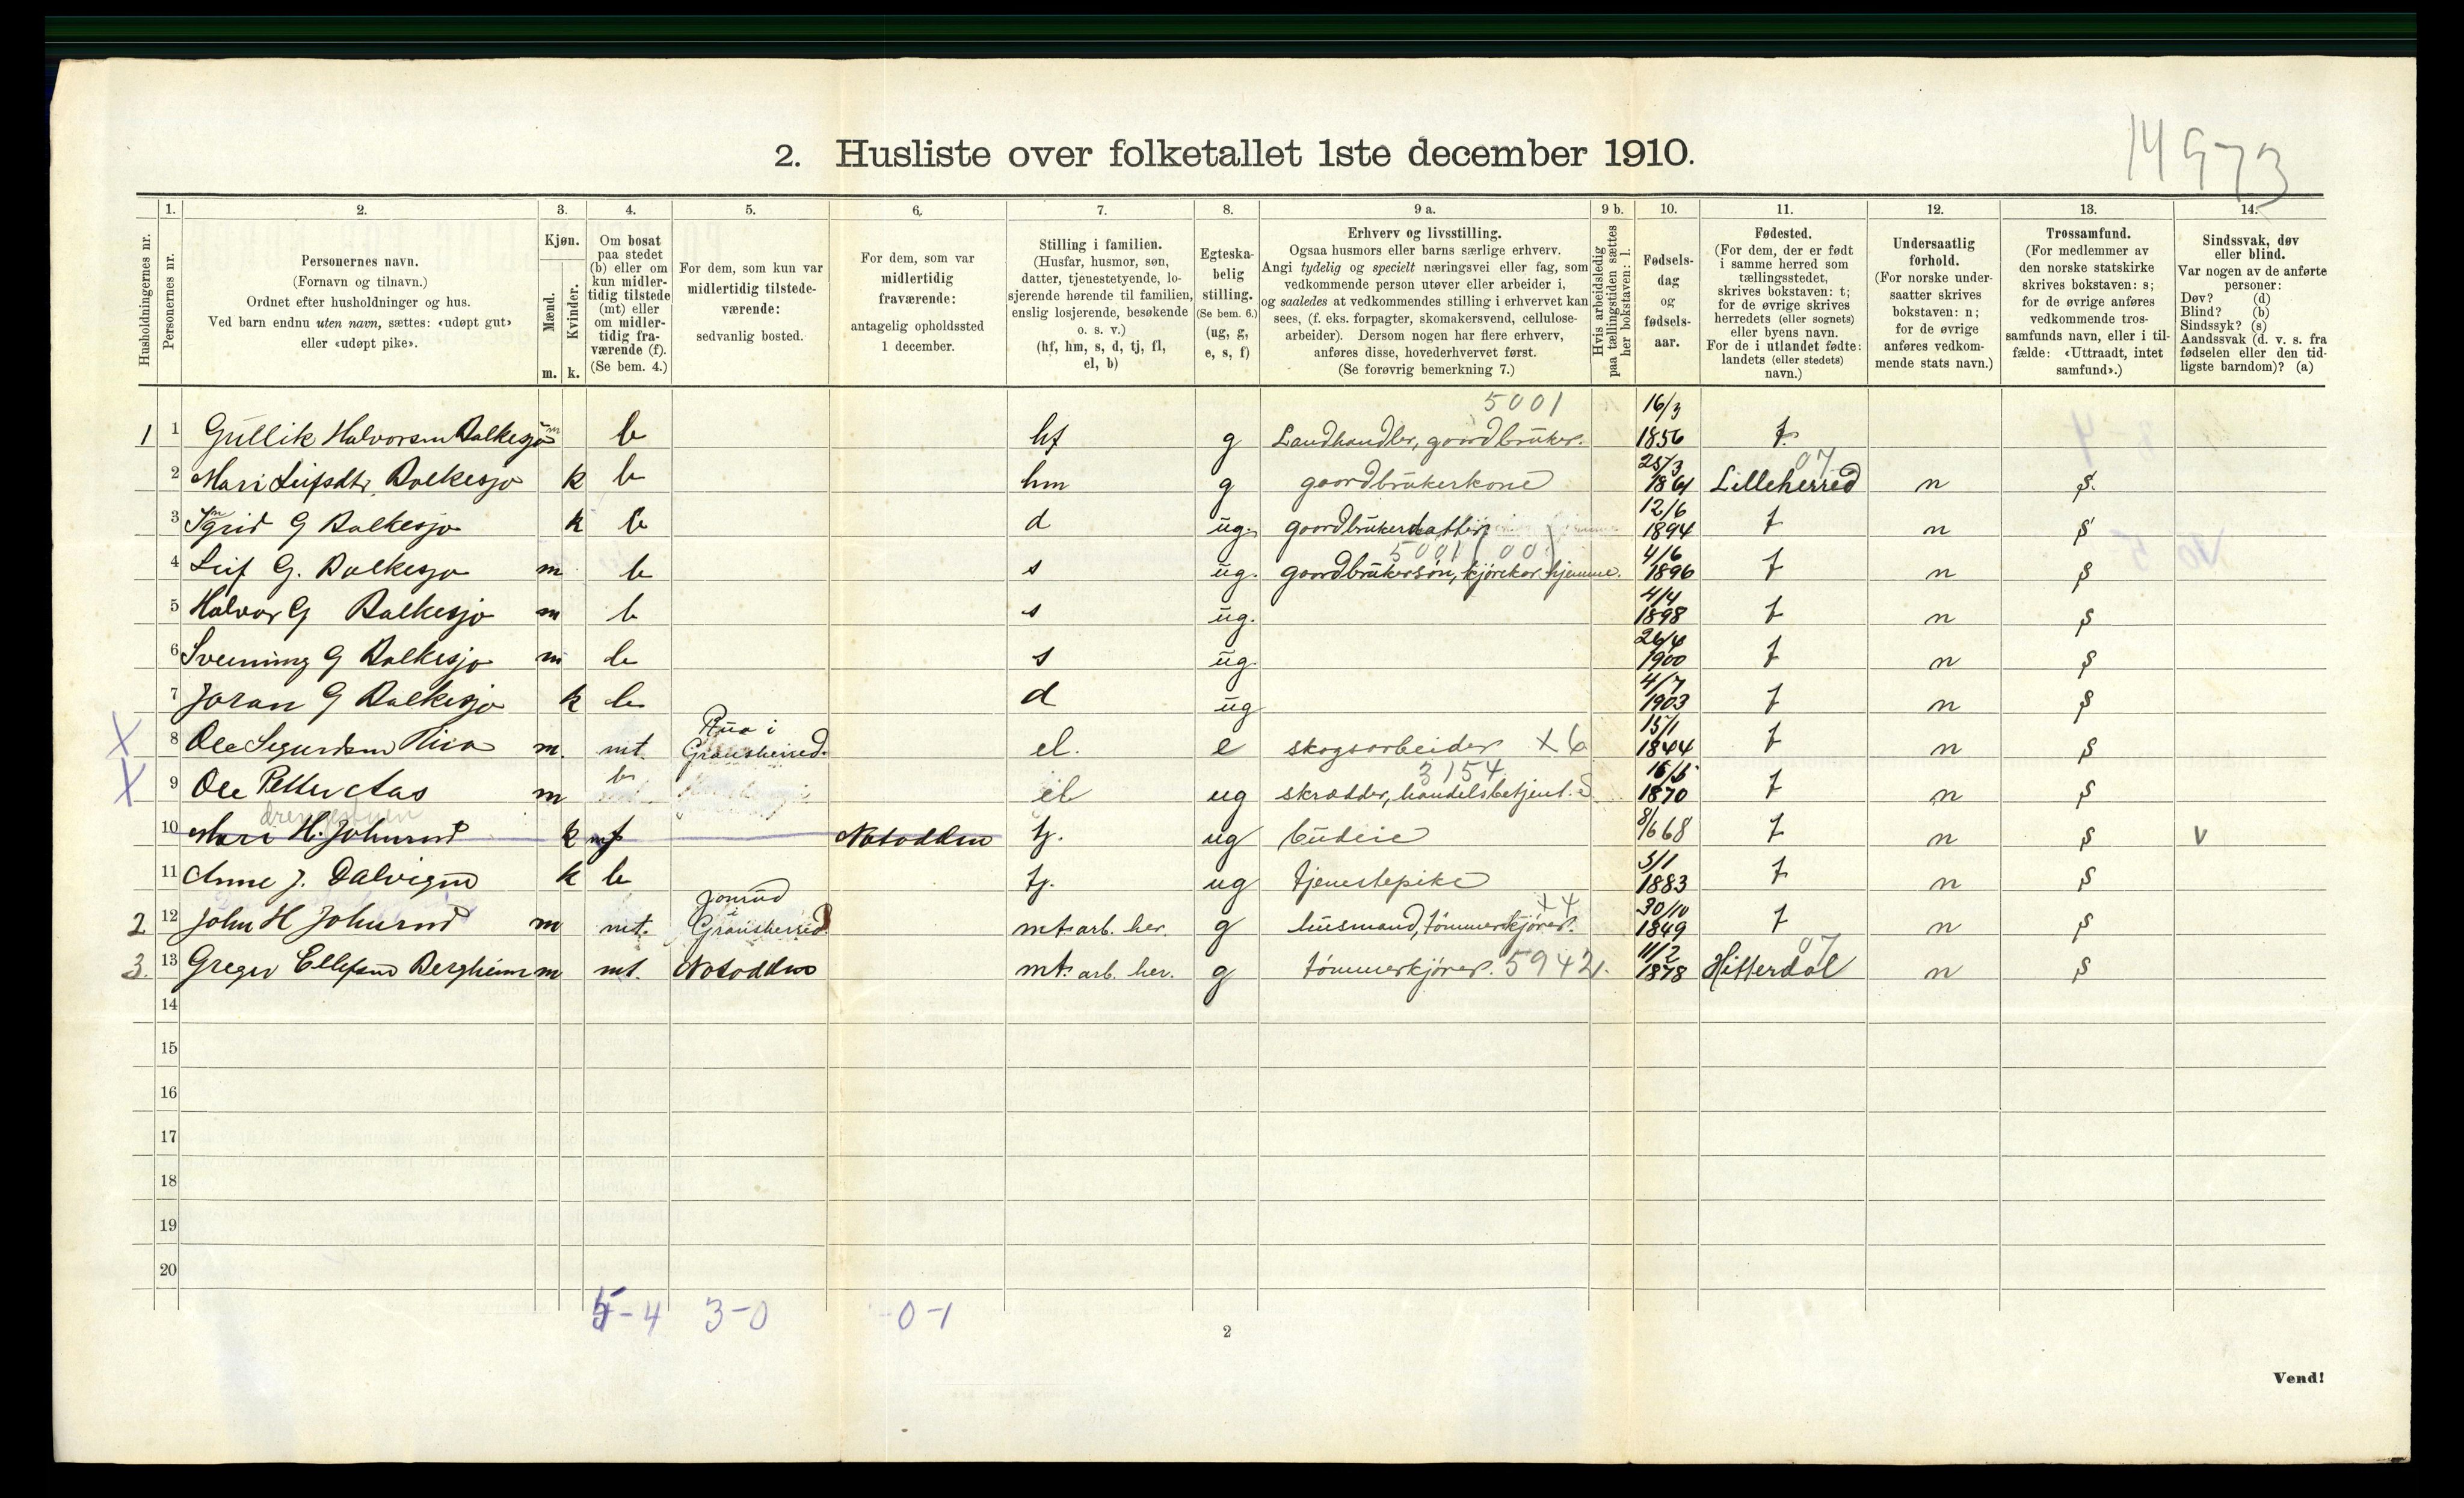 14973
2. Husliste over folketallet 1ste december 1910.
1. 2. 3. 4. 5. 6. 7. 8. 9 a. 9 b. 10. 11. 12. 13. 14.
Husholdningernes nr.
Personernes nr.
Personernes navn.
(Fornavn og tilnavn.)
Ordnet efter husholdninger og hus.
Ved barn endnu uten navn, sættes: «udøpt gut»
eller «udøpt pike».
Kjøn.
Mænd.
Kvinder.
m. k.
Om bosat
paa stedet
(b) eller om
kun midler-
tidig tilstede
(mt) eller
om midler-
tidig fra-
værende (f).
(Se bem. 4.)
For dem, som kun var
midlertidig tilstede-
værende:
sedvanlig bosted.
For dem, som var
midlertidig
fraværende:
antagelig opholdssted
1 december.
Stilling i familien.
(Husfar, husmor, søn,
datter, tjenestetyende, lo-
sjerende hørende til familien,
enslig losjerende, besøkende
o. s. v.)
(hf, hm, s, d, tj, fl,
el, b)
Egteska-
belig
stilling.
(Se bem. 6.)
(ug, g,
e, s, f)
Erhverv og livsstilling.
Ogsaa husmors eller barns særlige erhverv.
Angi tydelig og specielt næringsvei eller fag, som
vedkommende person utøver eller arbeider i,
og saaledes at vedkommendes stilling i erhvervet kan
sees, (f. eks. forpagter, skomakersvend, cellulose-
arbeider). Dersom nogen har flere erhverv,
anføres disse, hovederhvervet først.
(Se forøvrig bemerkning 7.)
Hvis arbeidsledig
paa tællingstiden sættes
her bokstaven: l.
Fødsels-
dag
og
fødsels-
aar.
Fødested.
(For dem, der er født
i samme herred som
tællingsstedet,
skrives bokstaven: t;
for de øvrige skrives
herredets (eller sognets)
eller byens navn.
For de i utlandet fødte:
landets (eller stedets)
navn.)
Undersaatlig
forhold.
(For norske under-
saatter skrives
bokstaven: n;
for de øvrige
anføres vedkom-
mende stats navn.)
Trossamfund.
(For medlemmer av
den norske statskirke
skrives bokstaven: s;
for de øvrige anføres
vedkommende tros-
samfunds navn, eller i til-
fælde: «Uttraadt, intet
samfund».)
Sindssvak, døv
eller blind.
Var nogen av de anførte
personer:
Døv? (d)
Blind? (b)
Sindssyk? (s)
Aandssvak (d. v. s. fra
fødselen eller den tid-
ligste barndom)? (a)
5001 16/3
1 1 Gullik Halvorsen Bolkesjø m b hf g Landhandler, gaardbruker. 1856 t.
25/3 07
2 Mari Leifsdtr. Bolkesjø k b hm g gaardbrukerkone 1861 Lilleherred n s.
12/6
3 Ingrid G Bolkesjø k b d ug. gaardbrukerdatter 1894 t n s
5001 (00) 4/6
4 Leif G. Bolkesjø m b s ug. gaardbrukersøn, kjørekar hjemme. 1896 t n s
4/4
5 Halvor G Bolkesjø m b s ug. 1898 t n s
26/4
6 Sveinung G Bolkesjø m b s ug. 1900 t n s
4/7
7 Joran G Bolkesjø k b d ug 1903 t n s
Rua i 15/1
X 8 Ole Sigurdsen Rua m. mt. Gransherred. el. e skogsarbeider X6 1844 t n s
3154 16/5
X 9 Ole Petter Aas m b el ug skrædder, handelsbetjent. 1870 t n s
drengestuen
10 Mari H. Johnsrud k f Notodden tj. ug budeie 8/6 68 t n s v
5/1
11 Anne J. Dalvigen k b tj. ug tjenestepike 1883 t n s
Jonrud X4 30/10
2 12 John H Johnsrud m mt. i Gransherred. mt: arb. her. g husmand, tømmerkjører. 1849 t n s
11/2 07
3. 13 Greger Ellefsen Bergheim m mt. Notodden mt: arb. her. g tømmerkjører. 5942 1878 Hitterdal n s
14
15
16
17
18
19
20
5-4 3-0 -0-1
2
Vend!